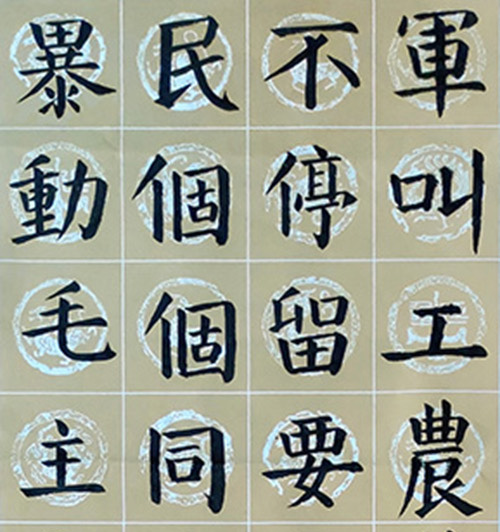 軍叫工農
不停留要
民個個同
暴動毛主